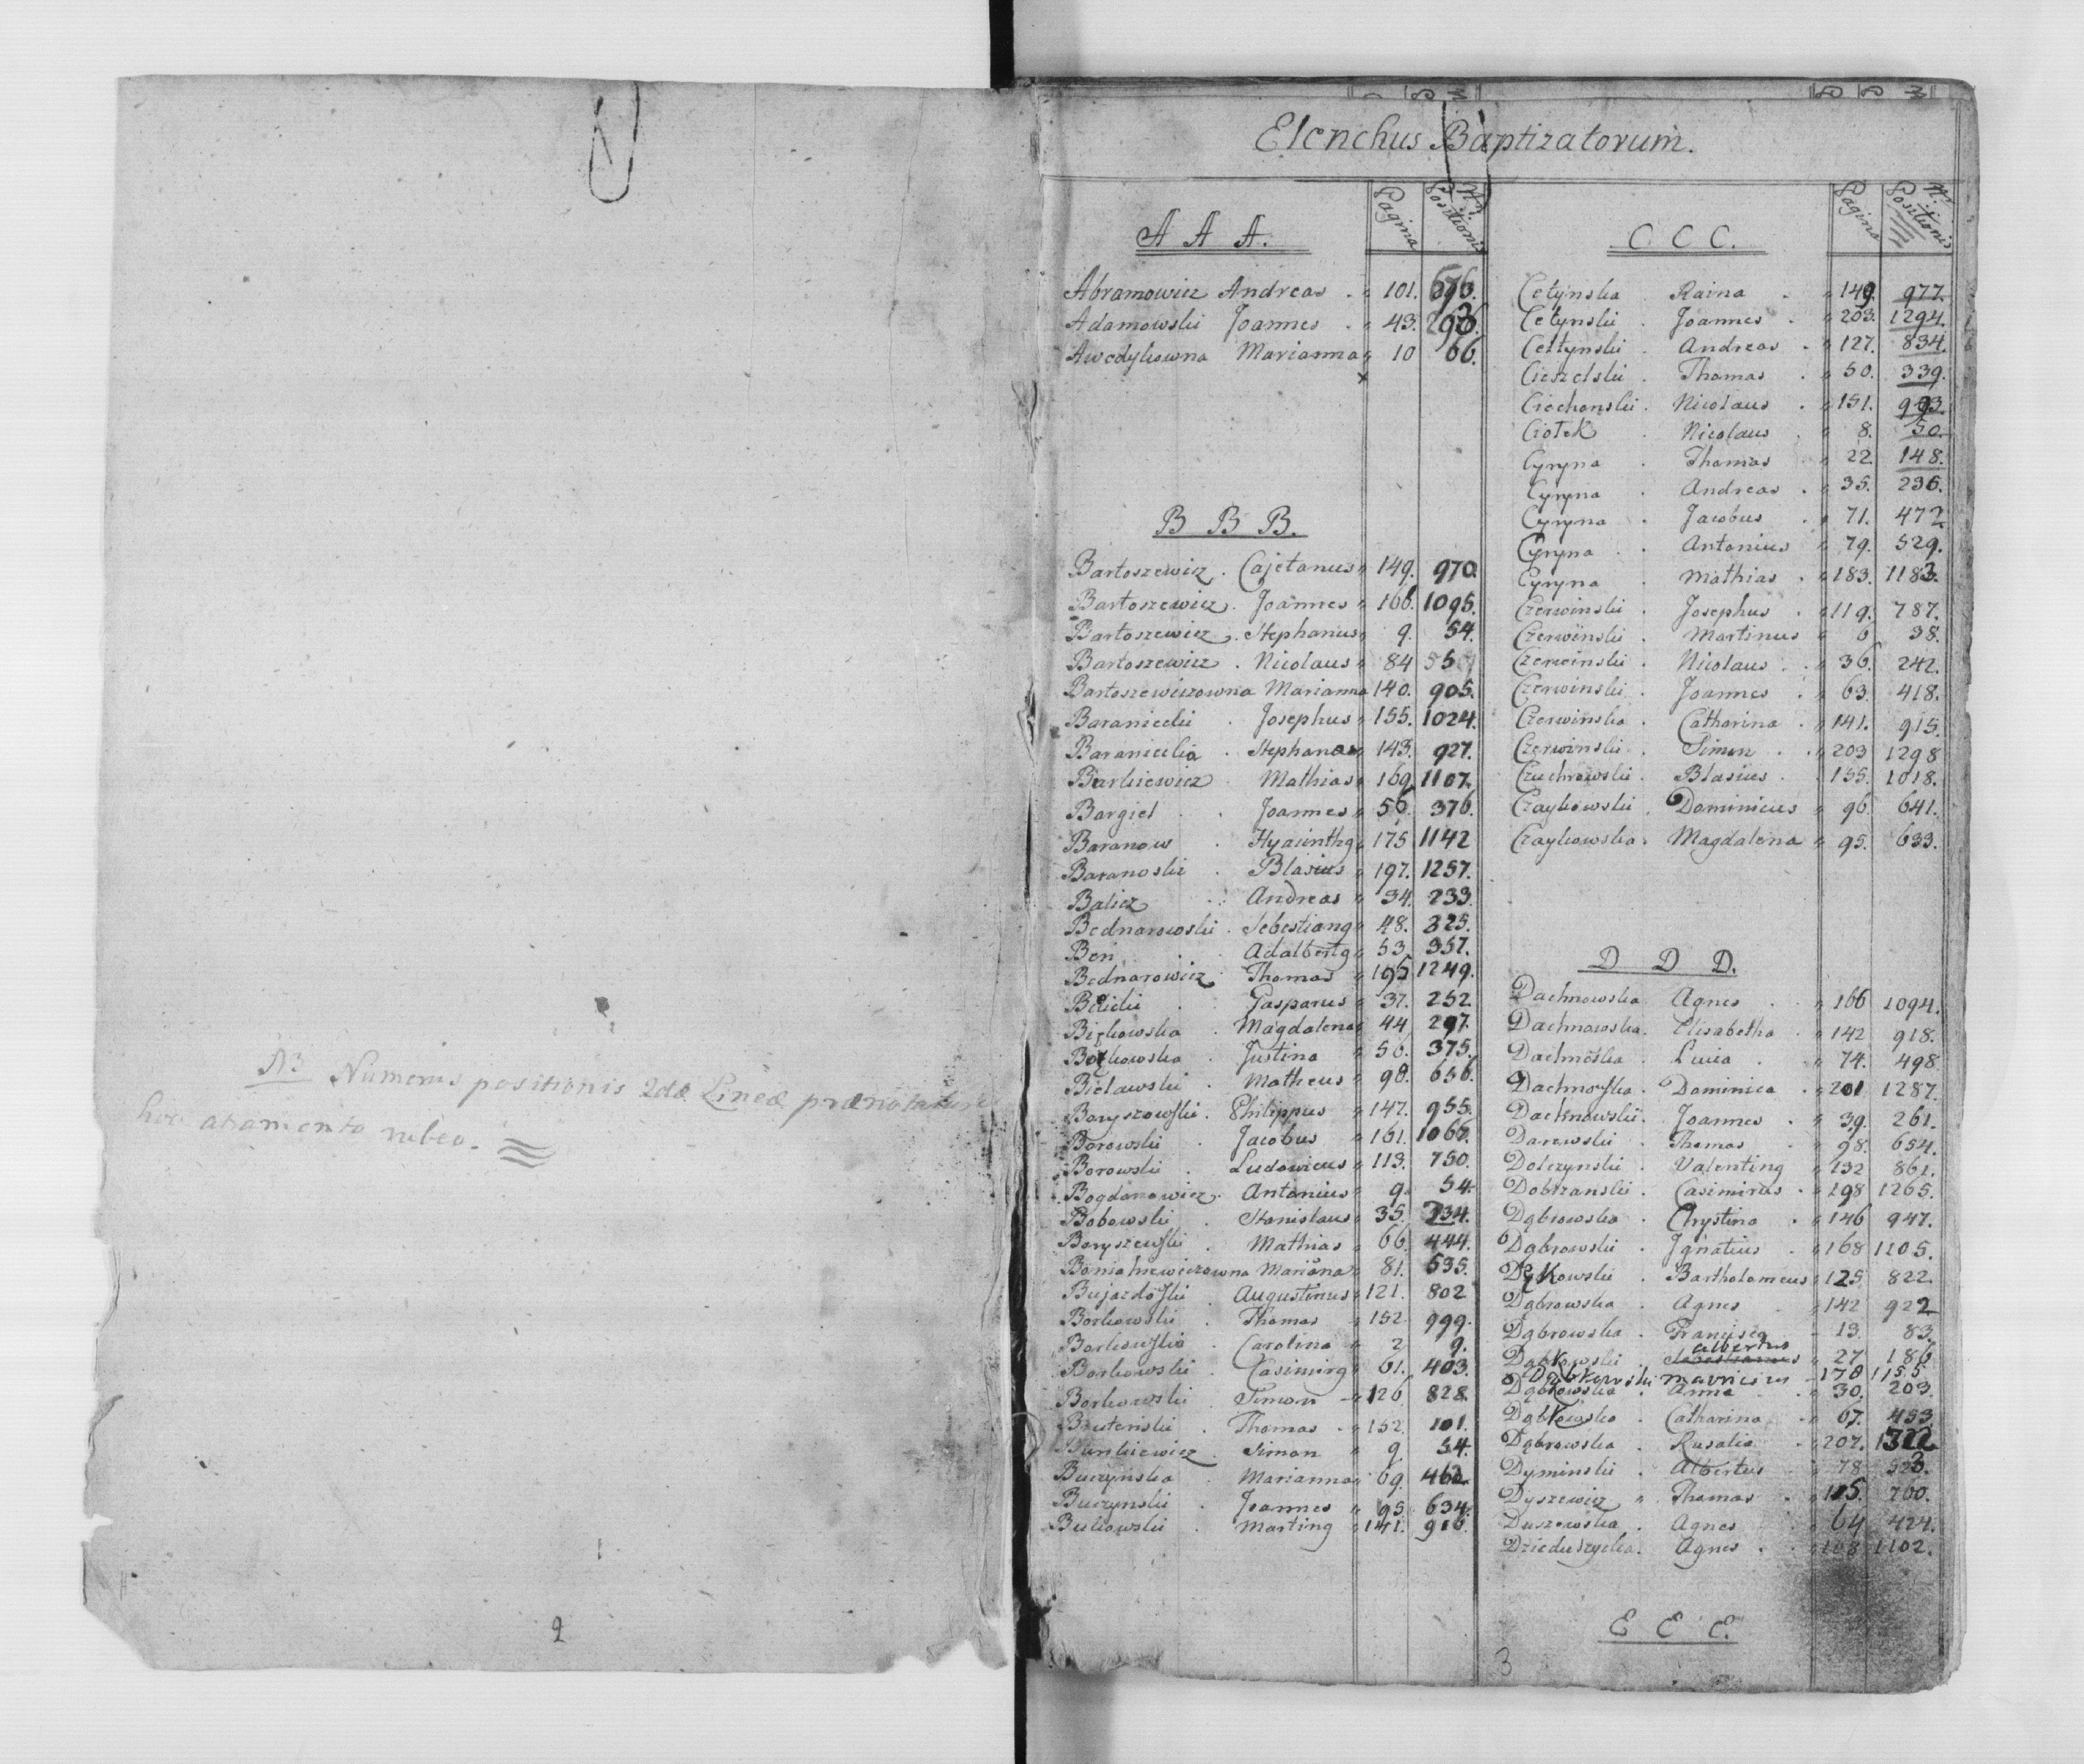 NB Numerus positionis 2da Linea prænotatur
hoc atramento rubeo.
2
Elenchus Baptizatorum.
Pagina
Nr. Positionis
A A A.
Abramowicz Andreas 101. 676.
Adamowski Joannes 43.
Awedykowna Marianna 10 66.
B B B.
Bartoszewicz Cajetanus 149. 970.
Bartoszewicz Joannes 166. 1095.
Bartoszewicz Stephanus 9. 54.
Bartoszewicz Nicolaus 84
Bartoszewiczowna Marianna 140. 905.
Baraniecki Josephus 155. 1024.
Baraniecka Stephana 143. 927.
Barkiewicz Mathias 169. 1107.
Bargiel Joannes 56. 376.
Baranow Hyacinthg 175 1142
Baranoski Blasius 197. 1257.
Balicz Andreas 34. 233.
Bednarowski Sebestiang 48. 325.
Ben Adalbertg 53. 357.
Bednarowicz Thomas 195 1249.
Gasparus 37. 252.
Magdalena 44 297.
Justina 56. 375.
Bielawski Matheus 98. 656.
Boryszowski Philippus 147. 955.
Borowski Jacobus 161. 1066.
Borowski Ludovicus 113. 750.
Bogdanowicz Antonius 9. 54.
Bobowski Stanislaus 35. 234.
Boryszewski Mathias 66. 444.
Mariana 81. 535.
Bujazdoski Augustinus 121. 802
Borkowski Thomas 152. 999.
Borkowska Carolina 2 9.
Borkowski Casimirg 61. 403.
Borkowski Simon 126. 828.
Thomas 152. 101.
Bunkiewicz Simon 9 54.
Buczynska Marianna 69. 462.
Buczynski Joannes 95. 634.
Buckowski Marting 141. 916.
3
Pagina
Nr. Positionis
C C C.
Cetynska Raina 149. 977.
Cetynski Joannes 203. 1294.
Cettynski Andreas 127. 834.
Cieszelski Thomas 50. 339.
Ciechonski Nicolaus 151. 993.
Ciołek Nicolaus 8. 50.
Cyryna Thomas 22. 148.
Cyryna Andreas 35. 236.
Cyryna Jacobus 71. 472
Cyryna Antonius 79. 529.
Cyryna Mathias 183. 1183.
Czerwinski Josephus 119. 787.
Czerwinski Martinus 6 38.
Czerwinski Nicolaus 36. 242.
Czerwinski Joannes 63. 418.
Czerwinska Catharina 141. 915.
Czerwinski Simon 203 1298
Czuchrowski Blasius 155. 1018.
Czaykowski Dominicus 96. 641.
Czaykowska Magdalena 95. 633.
D D D.
Dachnowska Agnes 166 1094.
Dachnowska Elisabetha 142 918.
Dachnoska Lucia 74. 498
Dachnoska Dominica 201 1287.
Dachnowski Joannes 39. 261.
Darewski Thomas 98. 654.
Dolczynski Valenting 132 861.
Dobrzanski Casimirus 198 1265.
Dąbrowska Chrystina 146 947.
Dąbrowski Ignatius 168 1105.
Bartholomeus 125 822.
Dąbrowska Agnes 142 922
Dąbrowska Francisca 13. 83.
Dąbkowski Albertus 27 186
Dąbkowski Mauricius 178 1155
Dąbkowska Anna 30. 203.
Dąbkowska Catharina 67. 453.
Dąbrowska Rosalia 207. 1322
Dyminski Albertus 78 523.
Dyszewicz Thomas 115. 760.
Duszewska Agnes 64 424.
Dzieduszycka Agnes 168 1102.
E E E.